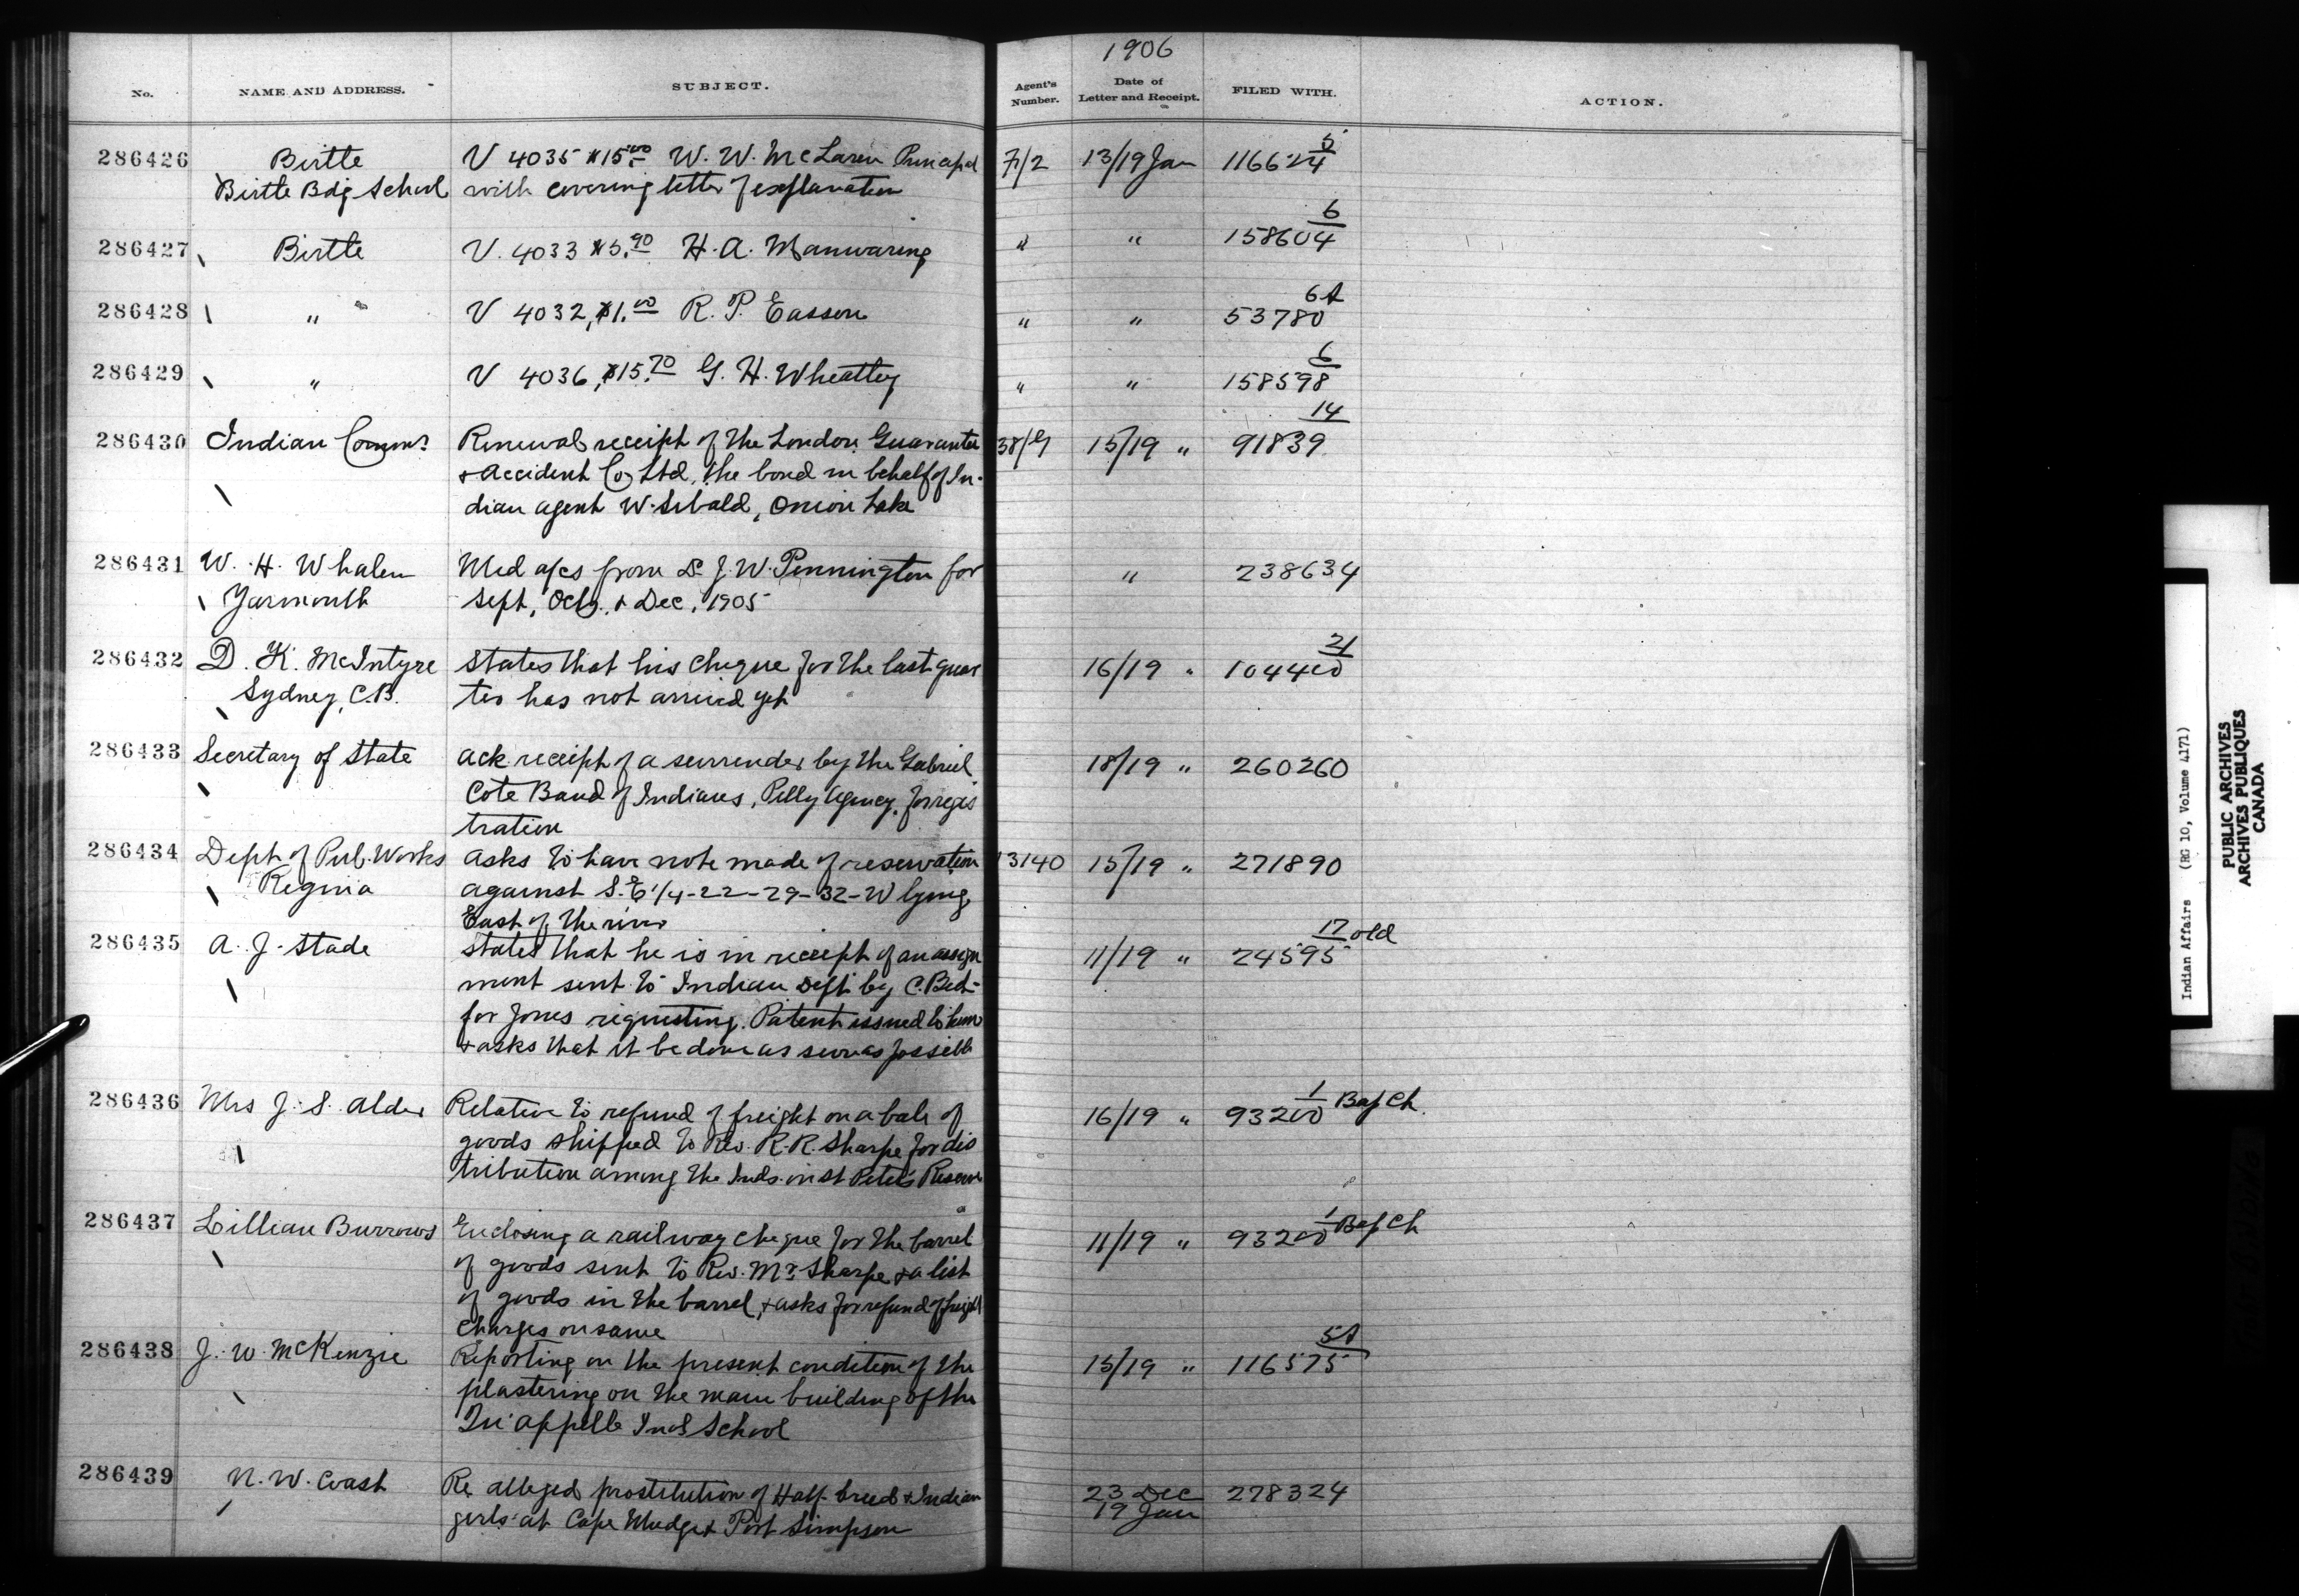 1906
No. NAME AND ADDRESS. SUBJECT. Agent's Number. Date of Letter and Receipt. FILED WITH. ACTION.
286426 Birtle V 4035 $15.00 W. W. McLaren Principal 7/2 13/19 Jan 116624 5
Birtle Bdg School with covering letter of explanation
286427 Birtle V. 4033 $5.90 H. A. Manwaring " " 158604 6
286428 " V 4032, $1.00 R. P. Easson " " 53780 6A
286429 " V 4036, $15.70 G. H. Wheatley " " 158598 6
286430 Indian Commr. Renewal receipt of the London Guarantee 38/G 15/19 " 91839 14
& Accident Co Ltd, the bond in behalf of In-
dian agent W. Sibald, Onion Lake
286431 W. H. Whalen Med a/cs from Dr J. W. Pennington for " 238634
Yarmouth Sept, Oct, & Dec, 1905
286432 D. K. McIntyre States that his cheque for the last quar 16/19 " 104400 21
Sydney, C.B. ter has not arrived yet
286433 Secretary of State ack receipt of a surrender by the Gabriel 18/19 " 260260
Cote Band of Indians, Pelly Agency, for regis
tration
286434 Dept of Pub. Works asks to have note made of reservation 13140 15/19 " 271890
Regina against S.E 1/4-22-29-32-W lying
East of the river
286435 A. J. Stade states that he is in receipt of an assign 11/19 " 24595 17 old
ment sent to Indian Dept by C. Bed-
for Jones requesting Patent issued to him
& asks that it be done as soon as possible
286436 Mrs J. S. Alder Relative to refund of freight on a bale of 16/19 " 93200 1 Bap Ch.
goods shipped to Rev. R. R. Sharpe for dis
tribution among the Inds. on St Peter's Reserve
286437 Lillian Burrows Enclosing a railway cheque for the barrel 11/19 " 93200 1 Bap Ch
of goods sent to Rev. Mr. Sharpe & a list
of goods in the barrel, & asks for refund of freight
charges on same
286438 J. W. McKenzie Reporting on the present condition of the 15/19 " 116575 5A
plastering on the main building of the
Qu'appelle Inds School
286439 N. W. Coast Re alleged prostitution of Half-breed & Indian 23 Dec 278324
girls at Cape Mudge & Port Simpson 19 Jan
Indian Affairs (RG 10, Volume 4171)
PUBLIC ARCHIVES
ARCHIVES PUBLIQUES
CANADA